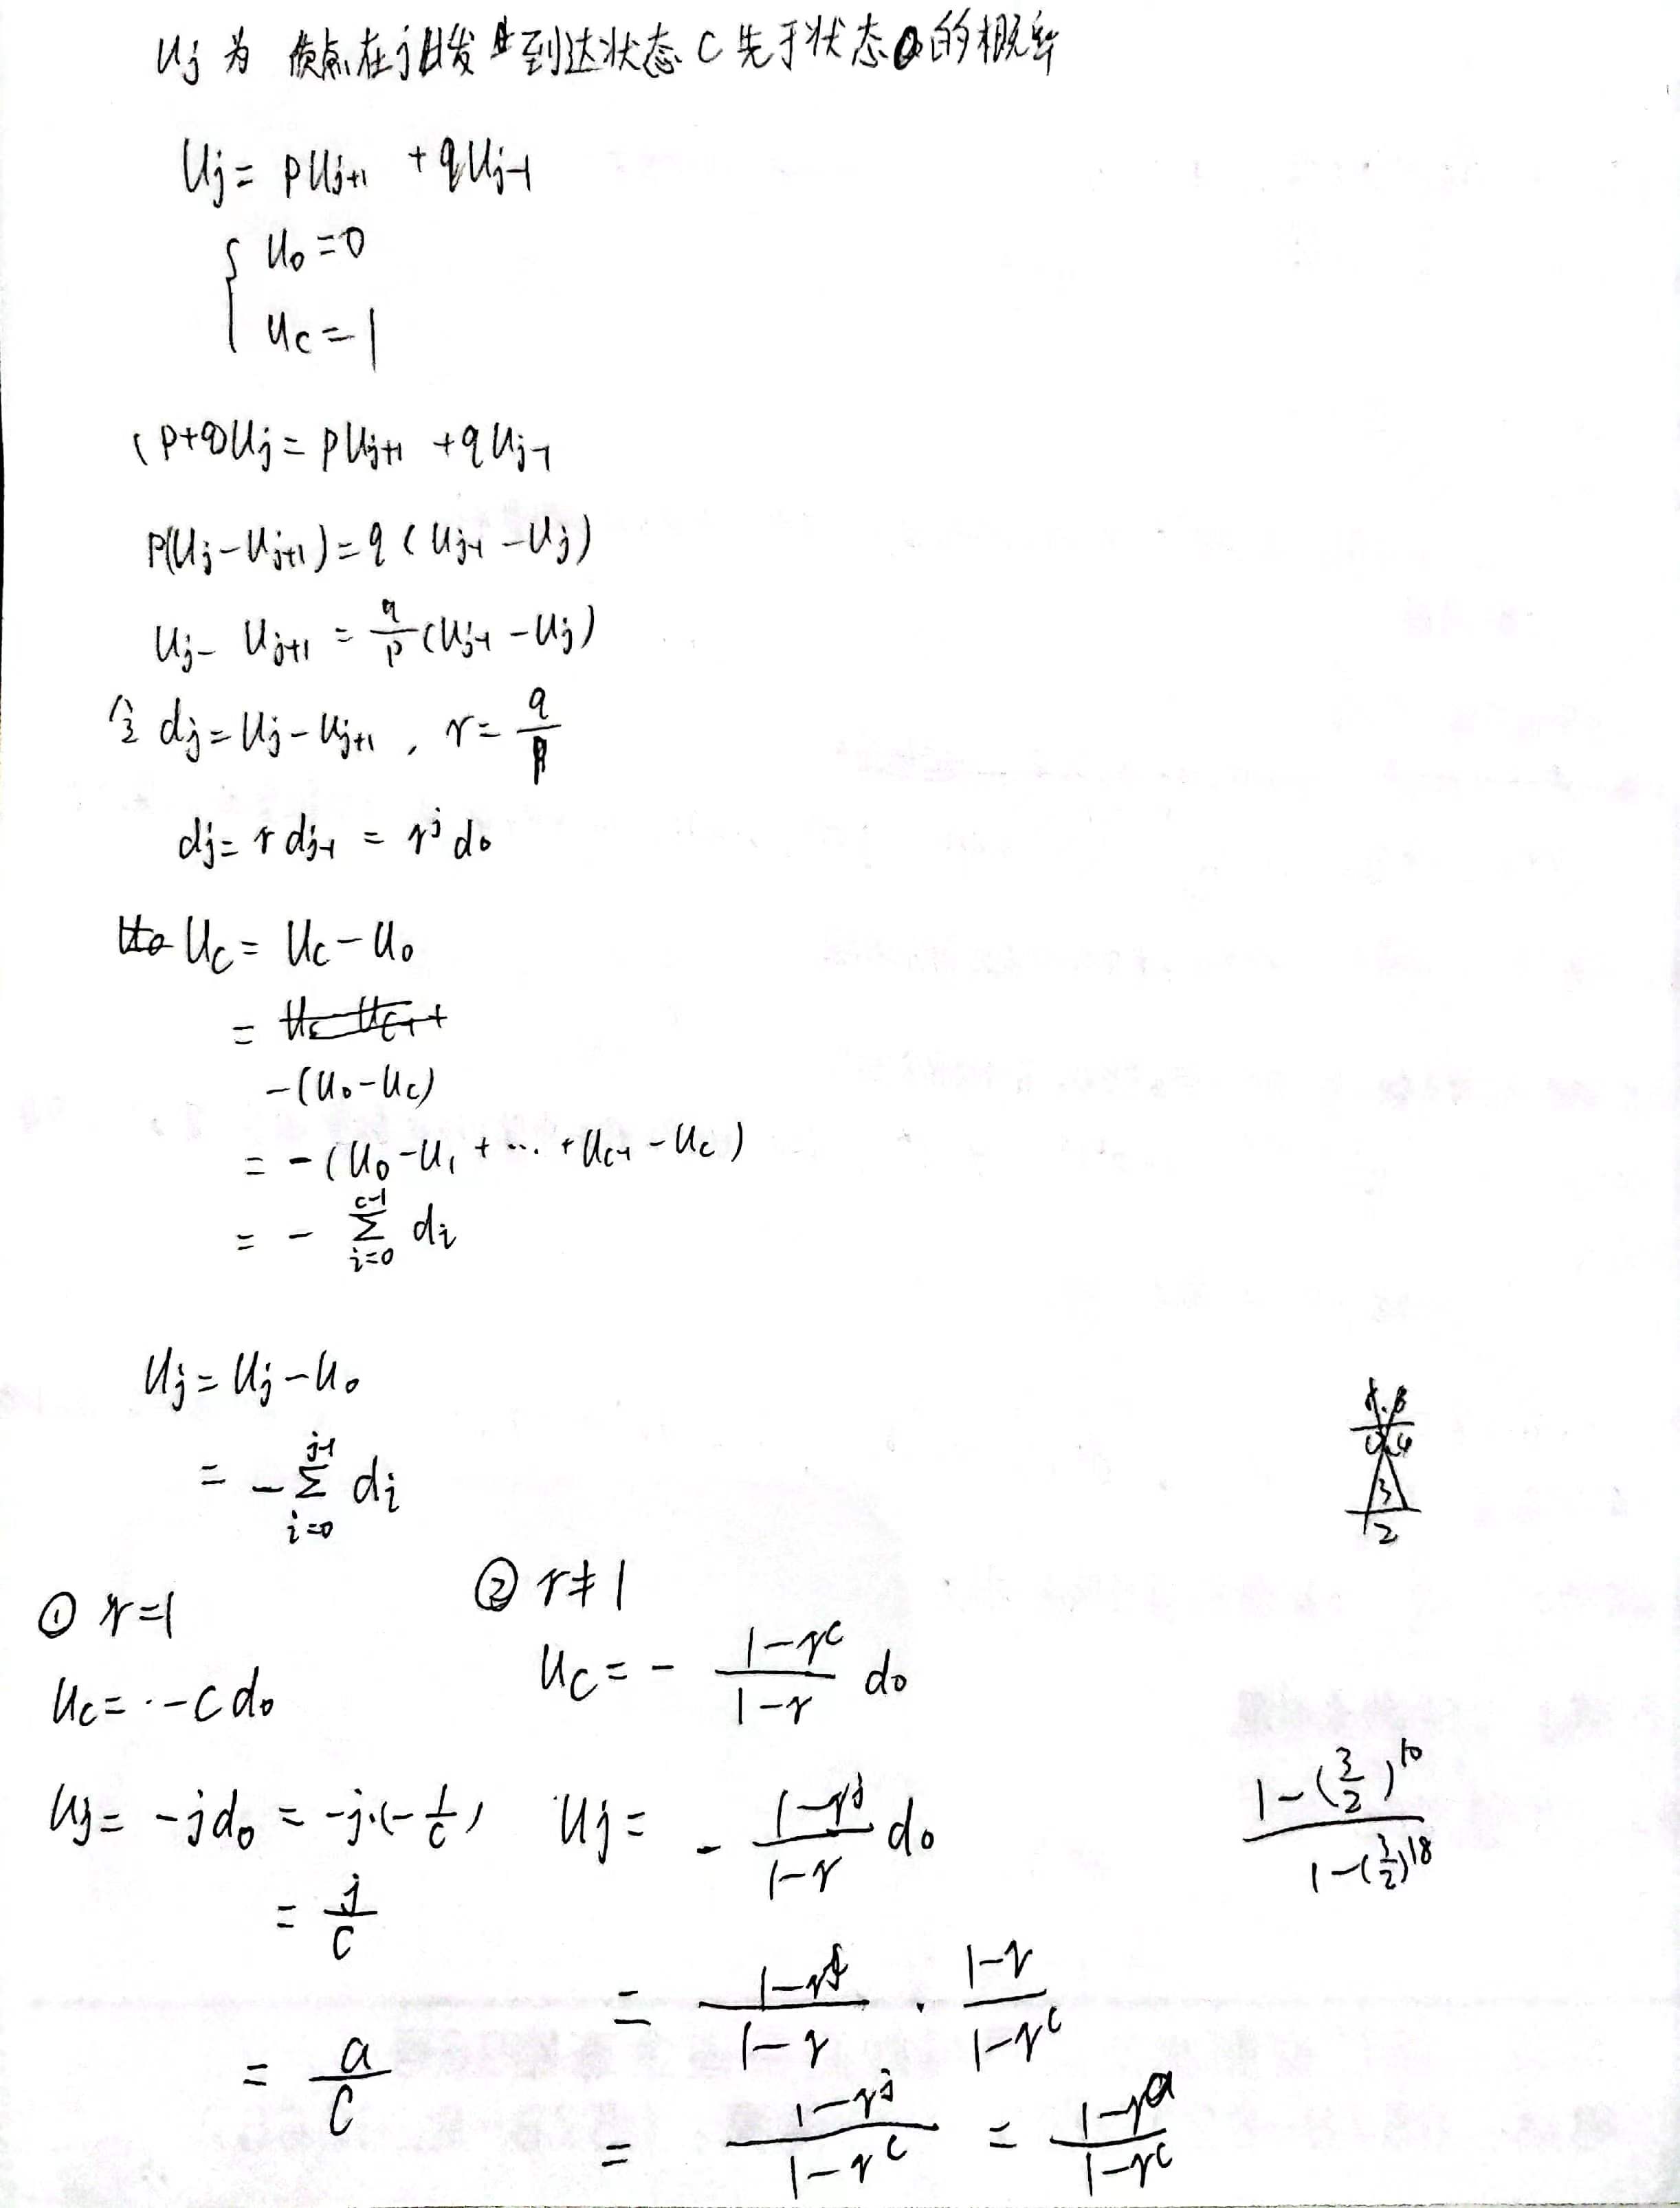 U_j 为 质点在j出发 到达状态 C 先于状态 0 的概率
U_j = pU_{j+1} + qU_{j-1}
{ U_0 = 0
U_C = 1
(p+q)U_j = pU_{j+1} + qU_{j-1}
p(U_j - U_{j+1}) = q(U_{j-1} - U_j)
U_j - U_{j+1} = \frac{q}{p}(U_{j-1} - U_j)
令 d_j = U_j - U_{j+1} , r = \frac{q}{p}
d_j = r d_{j-1} = r^j d_0
U_C = U_C - U_0
=
-(U_0 - U_C)
= -(U_0 - U_1 + ... + U_{C-1} - U_C)
= - \sum_{i=0}^{C-1} d_i
U_j = U_j - U_0
= - \sum_{i=0}^{j-1} d_i
① r = 1
U_C = -C d_0
U_j = -j d_0 = -j·(-\frac{1}{C})
= \frac{j}{C}
= \frac{a}{C}
② r ≠ 1
U_C = - \frac{1-r^C}{1-r} d_0
U_j = - \frac{1-r^j}{1-r} d_0
= \frac{1-r^j}{1-r} · \frac{1-r}{1-r^C}
= \frac{1-r^j}{1-r^C} = \frac{1-r^a}{1-r^C}
\frac{3}{2}
\frac{1-(\frac{3}{2})^{10}}{1-(\frac{3}{2})^{18}}